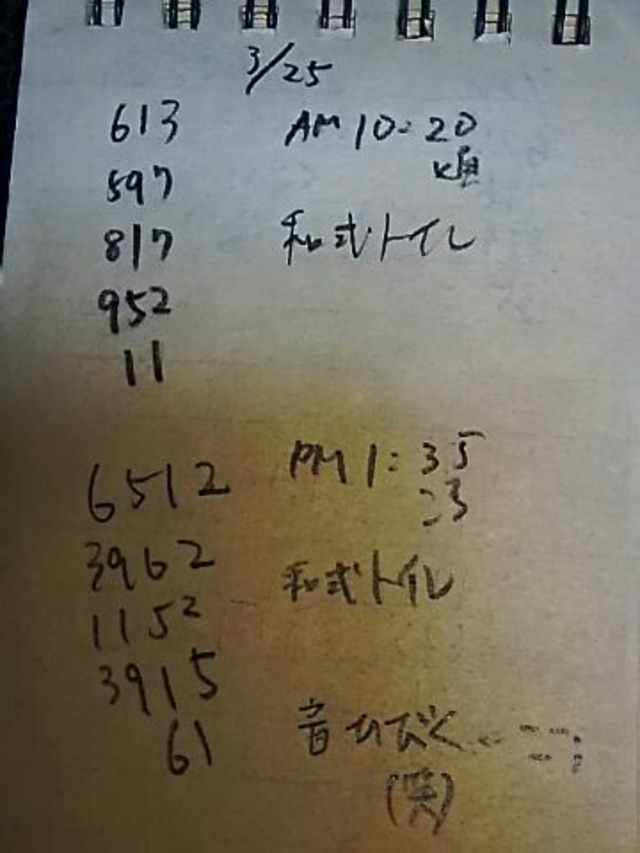 3/25
613 AM 10:20
597 頃
817 和式トイレ
952
11
6512 PM 1:35
ころ
3962 和式トイレ
1152
3915
61 音ひびく
(笑)